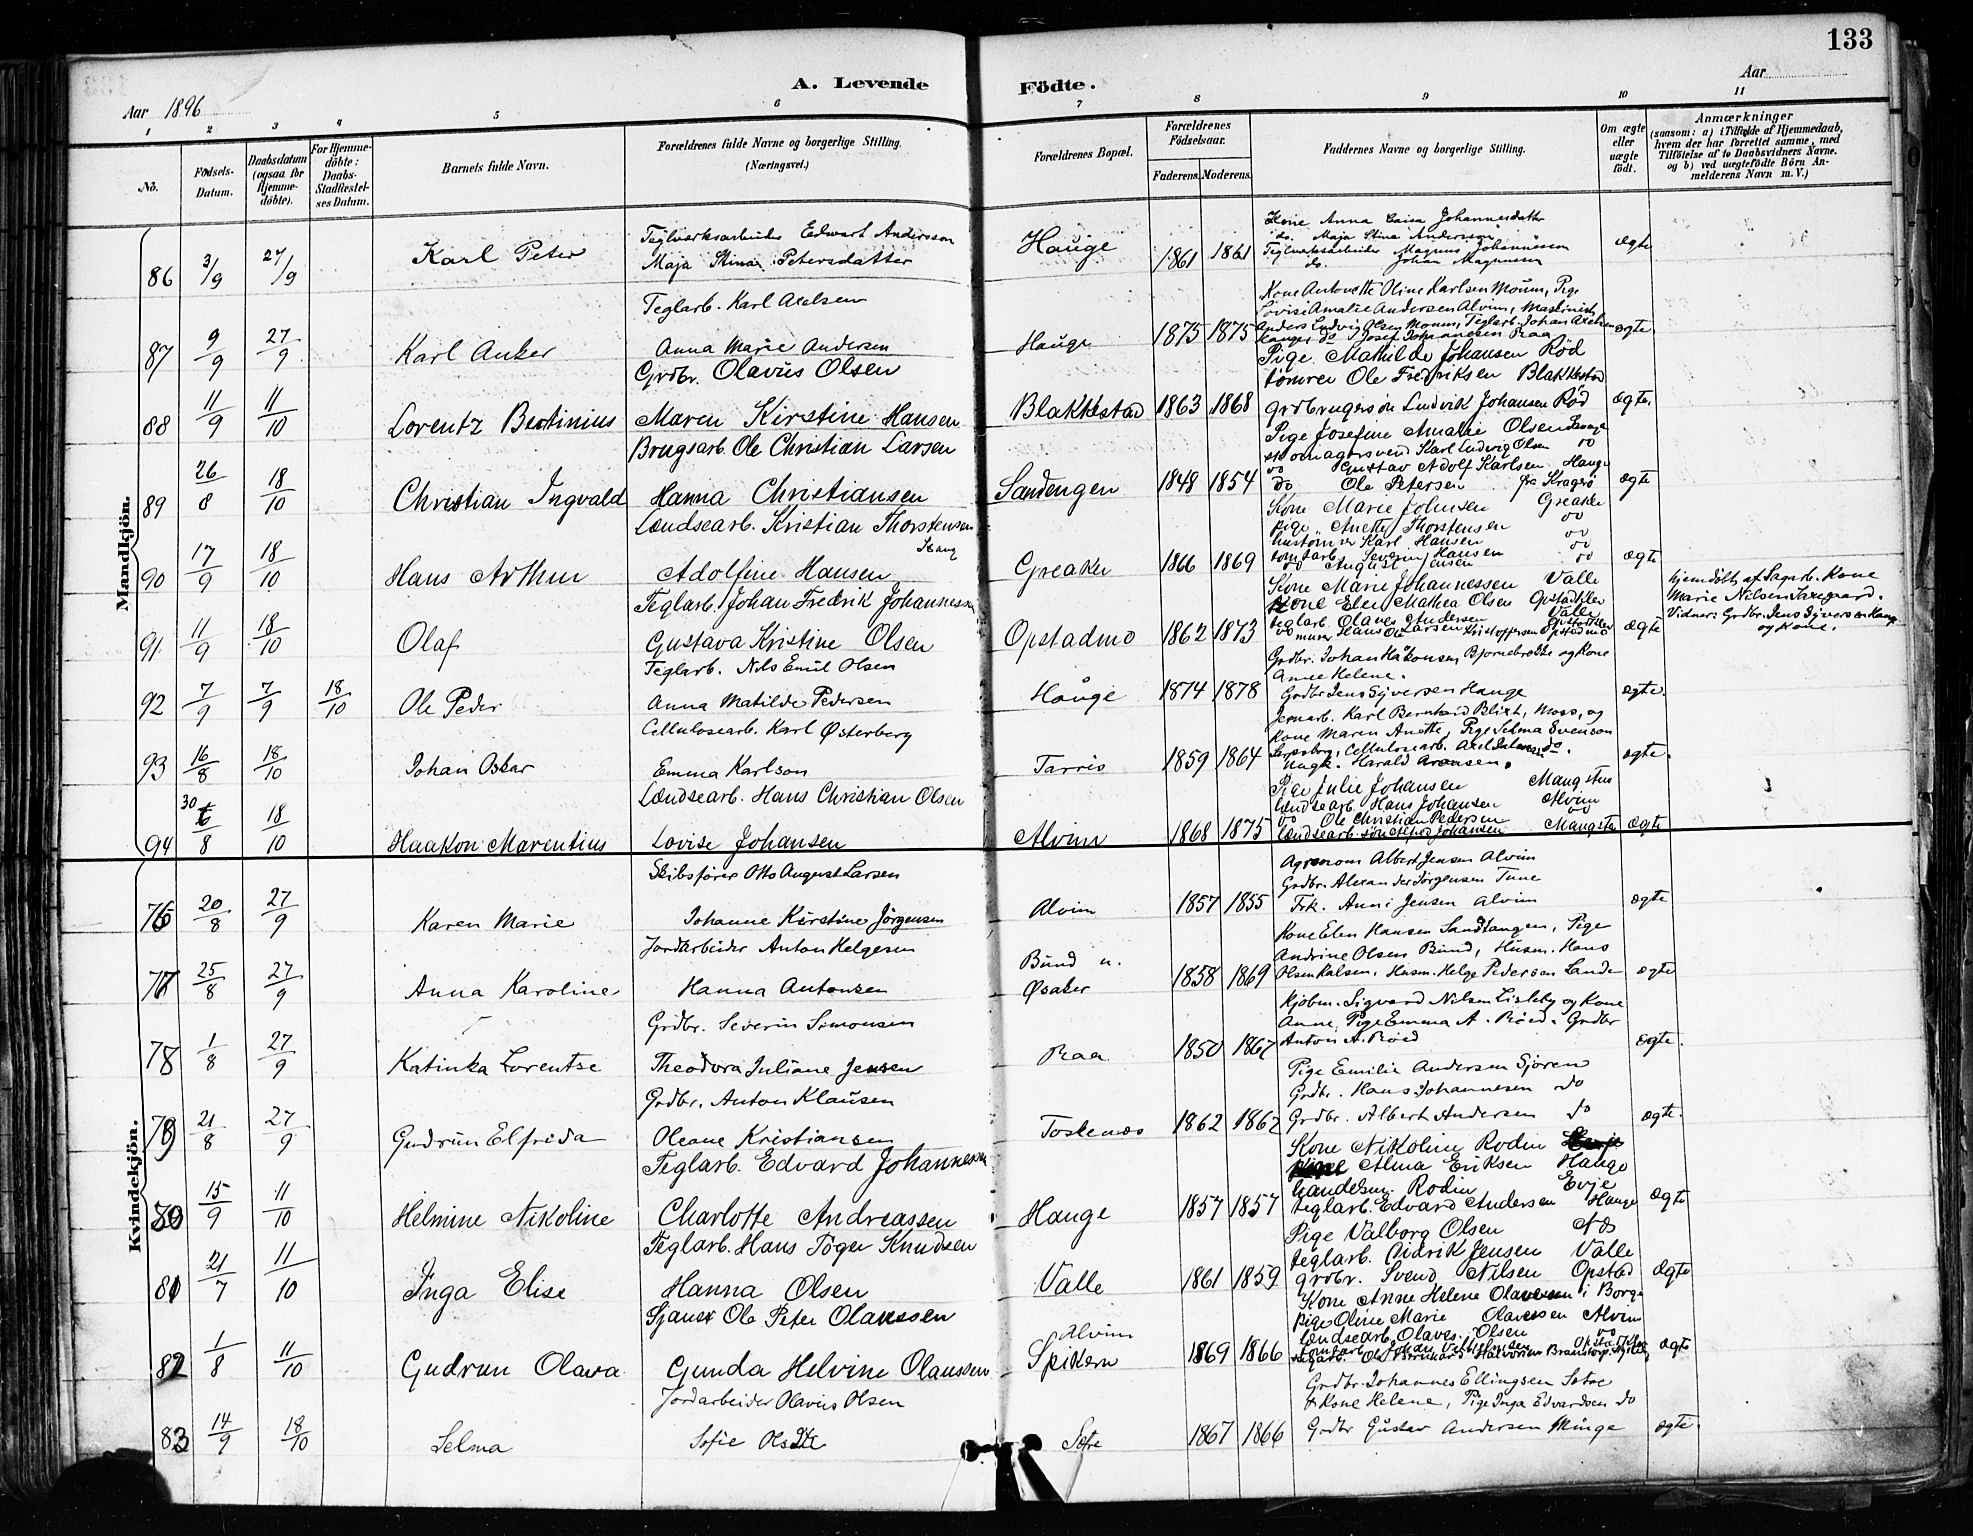 133
A. Levende Födte.
Aar 1896
Aar
1 2 3 4 5 6 7 8 9 10 11
No.
Fødsels-Datum.
Daabsdatum (ogsaa for Hjemme-döbte).
For Hjemme-döbte: Daabs-Stadfestel-ses Datum.
Barnets fulde Navn.
Forældrenes fulde Navne og borgerlige Stilling. (Næringsvei.)
Forældrenes Bopæl.
Forældrenes Födselsaar.
Faderens. Moderens.
Faddernes Navne og borgerlige Stilling.
Om ægte eller uægte födt.
Anmærkninger
(saasom: a) i Tilfælde af Hjemmedaab, hvem der har forrettet samme, med Tilföielse af to Daabsvidners Navne. og b) ved uegtefödte Börn An-melderens Navn m. V.)
Mandkjön.
86 3/9 27/9 Karl Peter
Teglværksarbeider Edwart Andersson
Maja Stina Petersdatter
Hauge 1861 1861
Kone Anna Caisa Johannesdatter
do. Maja Stina Andersson
Teglverksarbeider Magnus Johannesen
do. Johan Magnusson
ægte
87 9/9 27/9 Karl Anker
Teglarb. Karl Axelsen
Anna Marie Andersen
Hauge 1875 1875
Kone Antonette Oline Karlsen Moum, Pige
Lovise Amalie Andersen Alvim, Maskinist
Anders Ludvig Olsen Moum, Teglarb. Johan Axelsen
Hauge, do Josef Johannesen Raa
ægte
88 11/9 11/10 Lorentz Bertinius
Grdbr. Olavus Olsen
Maren Kirstine Hansen
Blakkestad 1863 1868
Pige Mathilde Johansen Rød
tømrer Ole Fredriksen Blakkestad
grdbrugersøn Ludvik Johansen Rød
ægte.
89 26/8 18/10 Christian Ingvald
Brugsarb. Ole Christian Larsen
Hanna Christiansen
Sandengen 1848 1854
Pige Josefine Amalie Olsen Hauge
skomagersvend Karl Ludvig Olsen do
do Gustav Adolf Karlsen Hauge
do Ole Petersen fra Kragerø
ægte
90 17/9 18/10 Hans Arthur
Lændsearb. Kristian Thorstensen
Adolfine Hansen
Greaker 1866 1869
Kone Marie Johnsen Greaker
pige Anette Thorstensen do
hustømrer Karl Hansen do
tomtarb. Severin Hansen do
do August Jensen
ægte
91 11/9 18/10 Olaf
Teglarb. Johan Fredrik Johannessen
Gustava Kristine Olsen
Opstadmo 1862 1873
Kone Marie Johannessen Valle
Kone Elen Mathea Olsen
teglarb. Olaves Andersen Valle
ægte
92 7/9 7/9 18/10 Ole Peder
Teglarb. Nils Emil Olsen
Anna Matilde Pedersen
Hauge 1874 1878
Grdbr. Johan Håkonsen Bjørnebrække og Kone
Anne Helene.
Grdbr Jens Syversen Hauge
ægte.
hjemdøbt af Sagarb. Kone
Marie Nilsen
Vidner: Grdbr. Jens Syversen Hauge
og Kone.
93 16/8 18/10 Johan Oskar
Cellulosearb. Karl Østerberg
Emma Karlson
Tarris 1859 1864
Jernarb. Karl Bernhard Blixt, Moss, og
Kone Maren Anette, Pige Selma Svenson
Sarpsborg, Cellulosearb. Axel do.
Ungk. Harald Aronsen.
ægte.
94 30/8 18/10 Haakon Marentius
Lændsearb. Hans Christian Olsen
Lovise Johansen
Alvim 1868 1875
Pige Julie Johansen Mangstu
lændsearb. Hans Johansen Alvim
do Ole Christian Pedersen do
lændsearb.søn Alfred Johansen Mangstu
ægte
Kvindekjön.
76 20/8 27/9 Karen Marie
Skibsfører Otto August Larsen
Johanne Kirstine Jørgensen
Alvim 1857 1855
Agronom Albert Jensen Alvim
Grdbr. Alexander Jørgensen Tune
Frk. Anni Jensen Alvim
ægte
77 25/8 27/9 Anna Karoline
Jordarbeider Anton Helgesen
Hanna Antonsen
Bund u. Øsaker 1858 1869
Kone Elen Hansen Sandtangen, Pige
Andrine Olsen Bund, Husm. Hans
Olsen Kalsen, Husm. Helge Pederson Lande
ægte
78 1/8 27/9 Katinka Lorentse
Grdbr. Severin Simonsen
Theodora Juliane Jensen
Raa 1850 1867
Kjøbm. Sigvard Nilsen Lisleby og Kone
Anne, Pige Emma A. Røed. Grdbr
Anton A. Røed
ægte.
79 21/8 27/9 Gudrun Elfrida
Grdbr. Anton Klausen
Oleane Kristiansen
Toskenæs 1862 1862
Pige Emilie Andersen Sjøren
Grdbr. Hans Johannesen do
Grdbr. Albert Andersen do
ægte.
80 15/9 11/10 Helmine Nikoline
Teglarb. Edvard Johannessen
Charlotte Andreassen
Hauge 1857 1857
Kone Nikoline Rodin
Alma Eriksen Hauge
handelsm. Rodin Evje
teglarb. Edvard Andersen Hauge
ægte
81 21/7 11/10 Inga Elise
Teglarb. Hans Tøger Knudsen
Hanna Olsen
Valle 1861 1859
Pige Valborg Olsen Næs
teglarb. Didrik Jensen Valle
grdbr. Svend Nilsen Opstad
ægte
82 1/8 11/10 Gudrun Olava
Sjauer Ole Peter Olaussen
Gunda Helvine Olaussen
Alvim Spikern 1869 1866
Kone Anne Helene Olavesen i Borge
pige Oline Marie Olavesen Alvim
lændsearb. Olaves Olsen do
ægte
83 14/9 18/10 Selma
Jordarbeider Olavus Olsen
Sofie Olsdtr
Sotre 1867 1866
Grdbr. Johannes Ellingsen Sotre
& Kone Helene, Pige Inga Edvardsen do
Grdbr Gustav Andersen Minge
ægte.